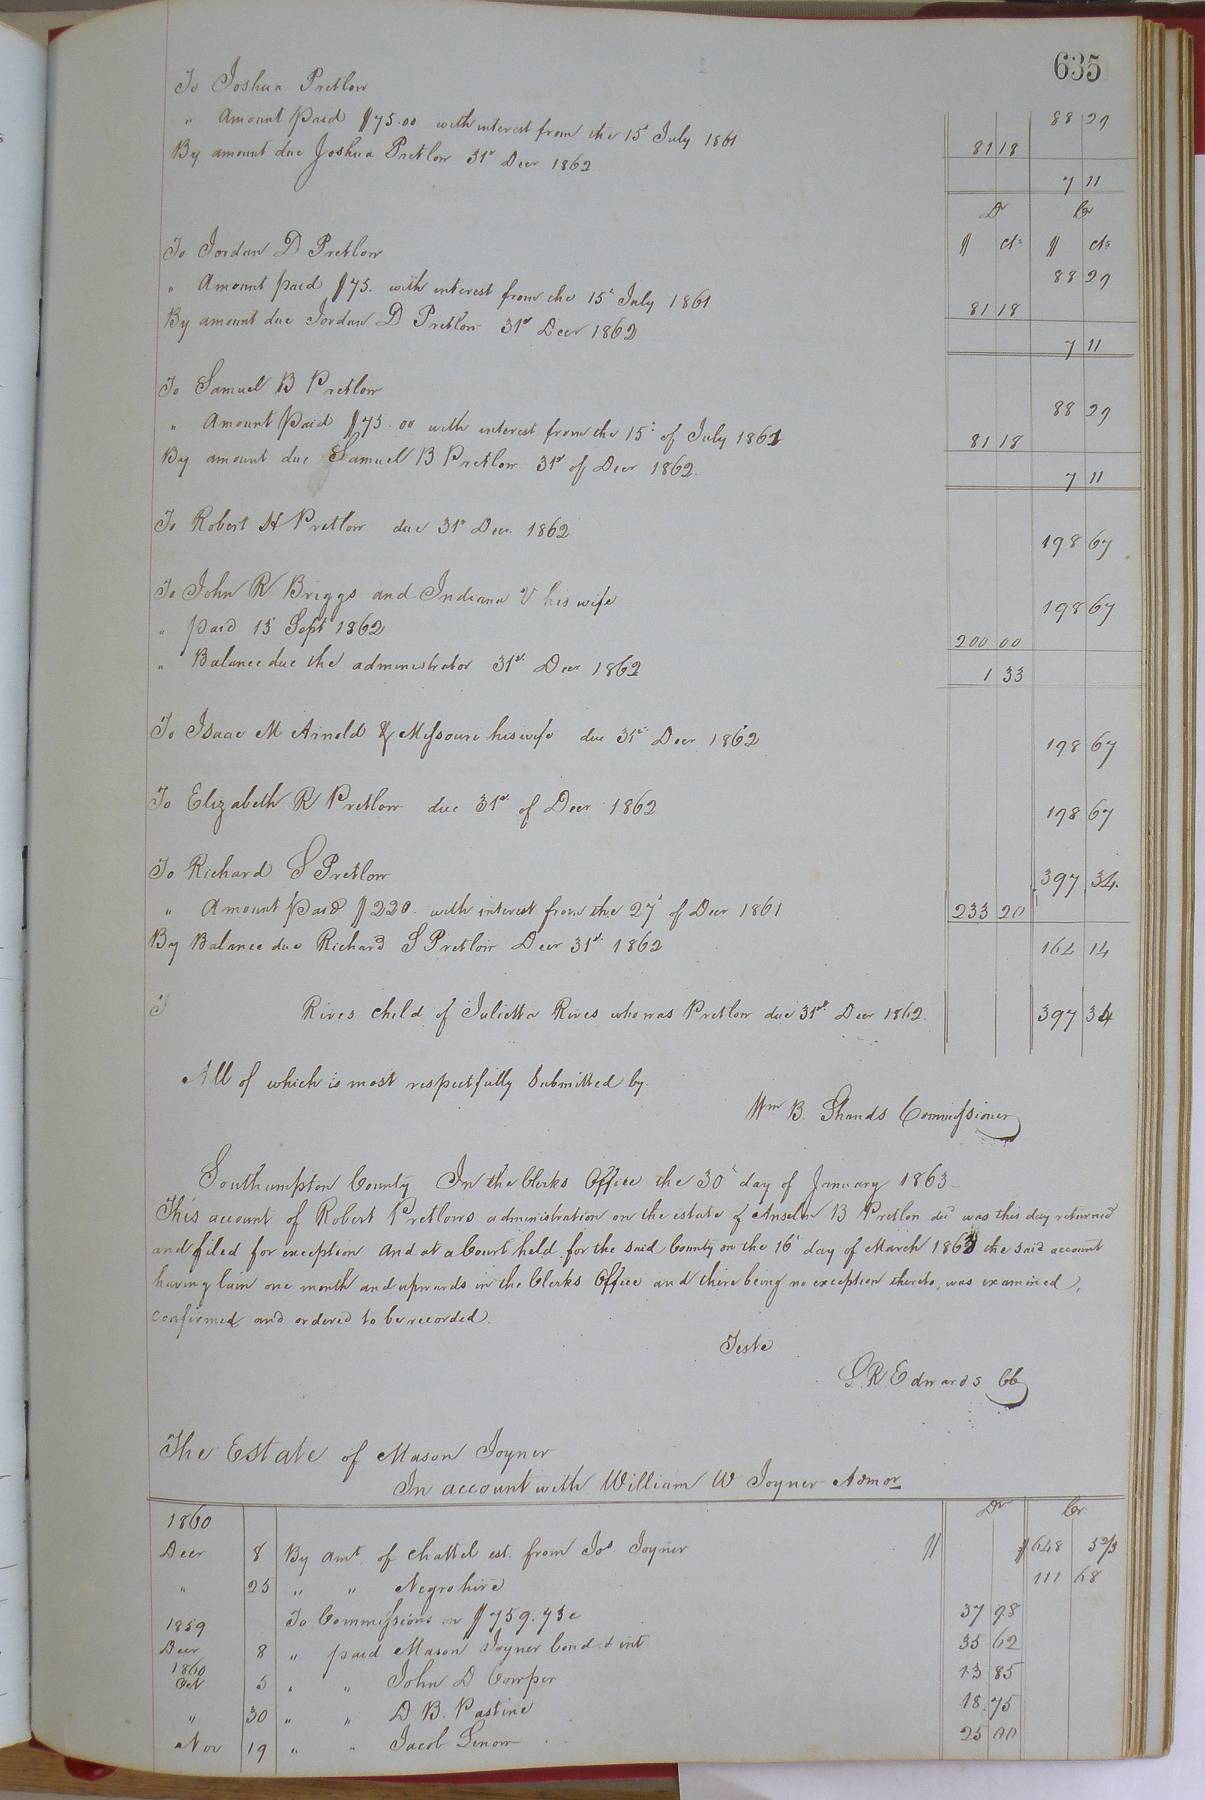 635
To Joshua Pretlow 88 29
" Amount paid $75.00 with interest from the 15th July 1861 81 18
By amount due Joshua Pretlow 31st Decr 1862 7 11
Dr Cr
$ cts $ cts
To Jordan D Pretlow 88 29
" Amount paid $75. with interest from the 15th July 1861 81 18
By amount due Jordan D Pretlow 31st Decr 1862 7 11
To Samuel B Pretlow 88 29
" Amount paid $75.00 with interest from the 15th of July 1861 81 18
By amount due Samuel B Pretlow 31st of Decr 1862. 7 11
To Robert H Pretlow due 31st Decr. 1862 198 67
To John R Briggs and Indiana V his wife 198 67
" paid 15 Sept 1862 200 00
" Balance due the administrator 31st Decr 1862 1 33
To Isaac M Arnold & Missouri his wife due 31st Decr 1862 198 67
To Elizabeth R Pretlow due 31st of Decr 1862 198 67
To Richard S Pretlow 397 34.
" Amount paid $220. with interest from the 27th of Decr 1861 233 20
By Balance due Richard S Pretlow Decr 31st 1862 164 14
T Rives child of Julietta Rives who was Pretlow due 31st Decr 1862. 397 34
All of which is most respectfully submitted by.
Wm B. Shands Commissioner
Southampton County In the Clerks Office the 30th day of January 1863
This account of Robert Pretlows administration on the estate of Anselm B Pretlow decd was this day returned
and filed for exception and at a Court held for the said County on the 16th day of March 1863 the said account
having lain one month and upwards in the Clerks Office and there being no exception thereto, was examined,
confirmed and ordered to be recorded.
Teste
L. R Edwards CC
The Estate of Mason Joyner
In account with William W Joyner Admor
1860 Dr Cr
Decr 8 By amt. of chattel est. from Jos. Joyner $ $648 5 2/3
" 25 " " Negro hire 111 68
1859 To Commissions on $759.73c 37 98
Decr 8 " paid Mason Joyner bond & int 35 62
1860
Oct 5 " " John D Cowper 13 85
" 30 " " D. B. Pastine 18.75
Nov 19 " " Jacob Lenow 25 00